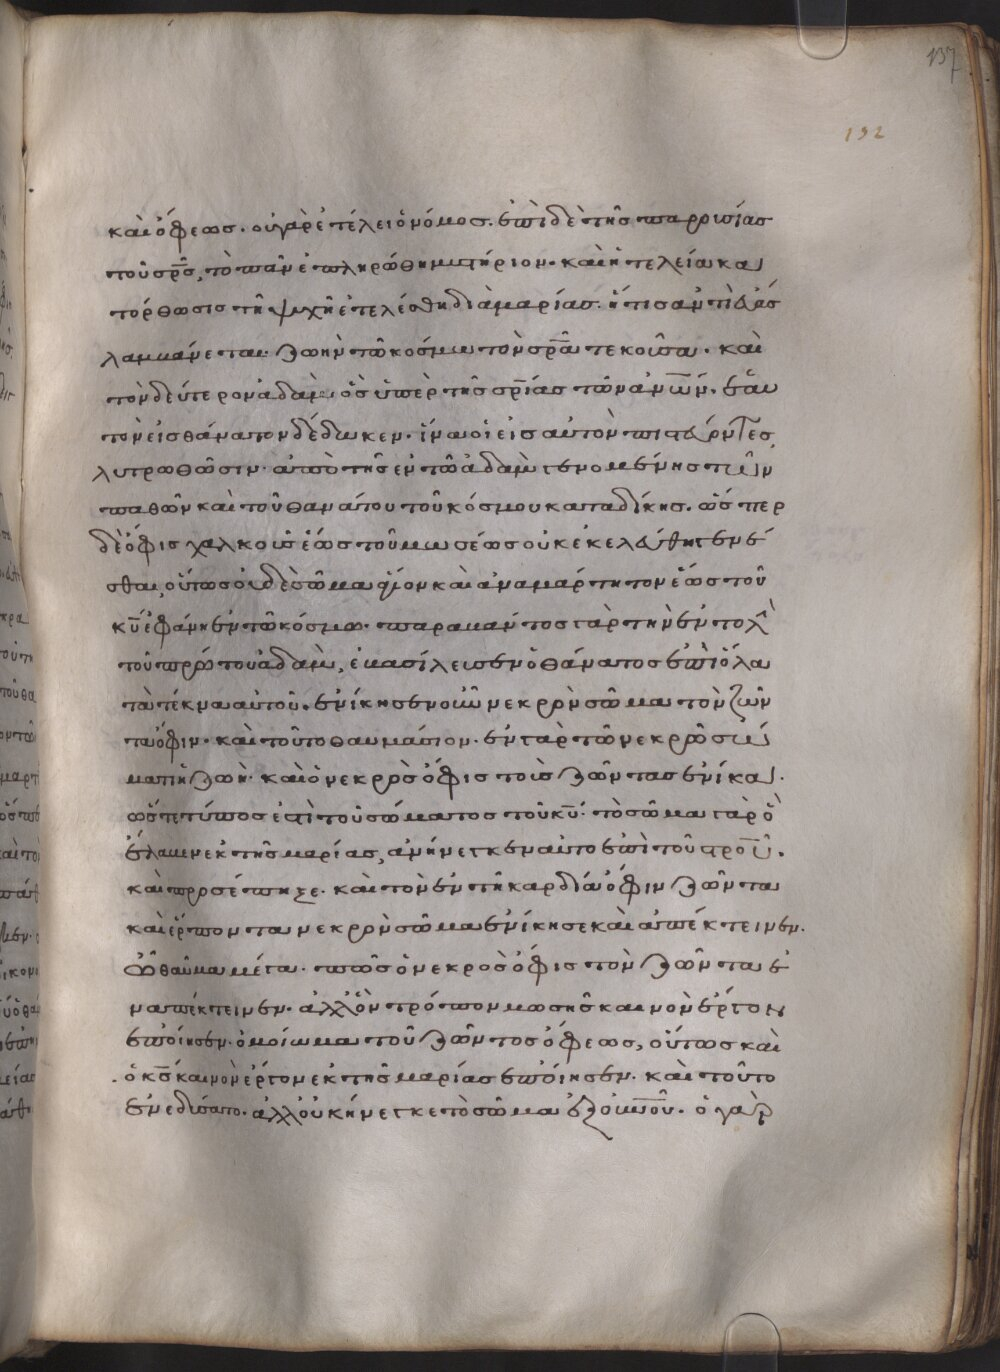 137
132
καὶ ὄφεως. οὐ γὰρ ἐτέλει ὁ νόμος. ἐπὶ δὲ τῆς παρρισίας
τοῦ σρ̅ς, τὸ πᾶν ἐπληρώθη μυστήριον. καὶ ἡ τελεία κα
τόρθωσις τῆ ψυχῆ ἐτελέσθη διὰ μαρίας. ἥτις ἀντὶ εὔας
λαμβάνεται. ζωὴν τῶ κόσμω τὸν σρ̅α τεκοῦσα. καὶ
τὸν δεύτερον ἀδὰμ, ὃς ὑπὲρ τῆς σρ̅ίας τῶν ἀν̅ων. ἑαυ
τὸν εἰς θάνατον δέδωκεν. ἵνα οἱ εἰς αὐτὸν πιστεύοντες
λυτρωθῶσιν. ἀπὸ τῆς ἐν τῶ ἀδὰμ γενομένης τῶν
παθῶν καὶ τοῦ θανάτου τοῦ κόσμου καταδίκης. ὥσπερ
δὲ ὄφις χαλκοῦς ἕως τοῦ μωσέως οὐκ ἐκελεύσθη γενέ
σθαι, οὕτως οὐδὲ σῶμα ἅγιον καὶ ἀναμάρτητον ἕως τοῦ
κυ̅ ἐφάνη ἐν τῶ κόσμω. παραβάντος γὰρ τὴν ἐντολὴ
τοῦ πρώτου ἀδὰμ, ἐβασίλευσεν ὁ θάνατος ἐπὶ ὅλα
τὰ τέκνα αὐτοῦ. ἐνίκησεν οὖν νεκρὸν σῶμα τὸν ζῶν
τα ὄφιν. καὶ τοῦτο θαυμάσιον. ἐν γὰρ τῶ νεκρῶ σώ
ματι ἡ ζωὴ. καὶ ὁ νεκρὸς ὄφις τοὺς ζῶντας ἐνίκα.
ὥς τε τύπος ἐστὶ τοῦ σώματος τοῦ κυ̅. τὸ σῶμα γὰρ ὃ
ἔλαβεν ἐκ τῆς μαρίας, ἀνήνεγκεν αὐτὸ ἐπὶ τοῦ στρο̅υ.
καὶ προσέπηξε. καὶ τὸν ἐν τῆ καρδία ὄφιν ζῶντα
καὶ ἕρποντα νεκρὸν σῶμα ἐνίκησε καὶ ἀπέκτεινεν.
ὢ θαῦμα μέγα. πῶς ὁ νεκρὸς ὄφις τὸν ζῶντα ἐ
ναπέκτεινεν. ἀλλ' ὃν τρόπον μωσῆς καινὸν ἔργον
ἐποίησεν. ὁμοίωμα τοῦ ζῶντος ὄφεως, οὕτως καὶ
ὁ κς̅ καινὸν ἔργον ἐκ τῆς μαρίας ἐποίησεν. καὶ τοῦτο
ἐνεδύσατο. ἀλλ' οὐκ ἤνεγκε τὸ σῶμα ἐξ οὐ̅νου. ὁ γὰρ